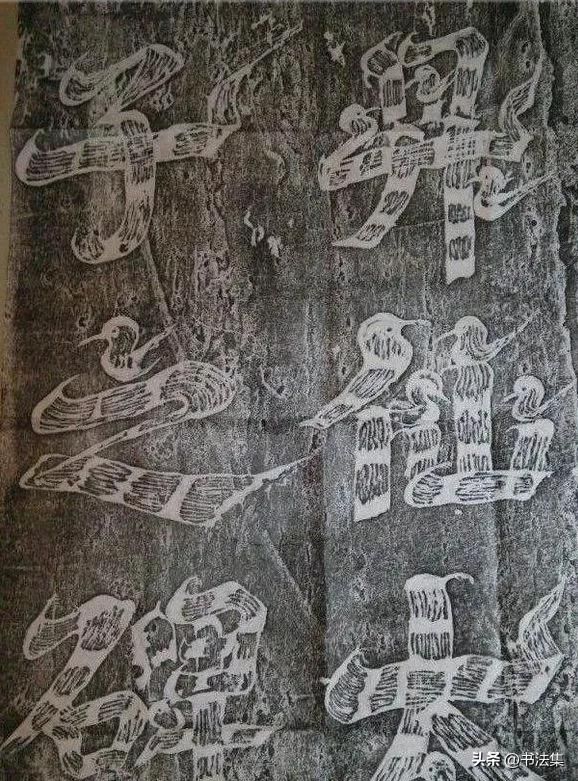 昇仙太
子之碑
头条 @书法集